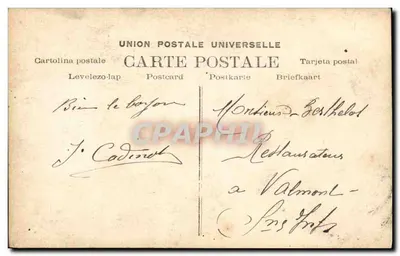 UNION POSTALE UNIVERSELLE
CARTE POSTALE
Cartolina postale
Tarjeta postal
Levelezo-lap Postcard Postkarte Briefkaart
le
J. Cadinot
Monsieur Berthelot
Restaurateur
a Valmont
CPAPHIL